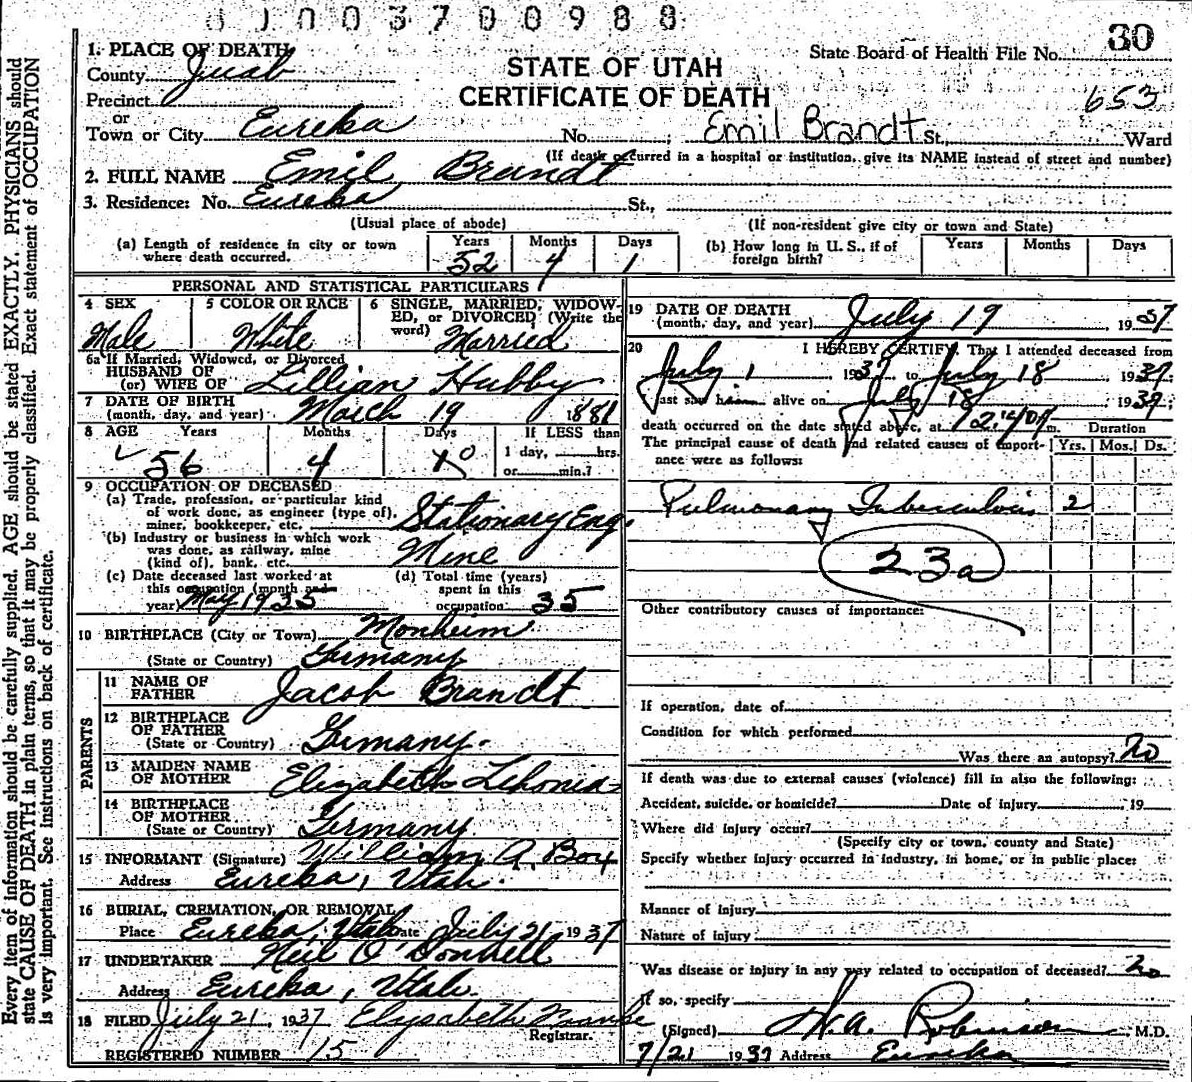 0 0 0 3 7 0 0 9 8 8
30
1. PLACE OF DEATH
County Juab
State Board of Health File No.
STATE OF UTAH
CERTIFICATE OF DEATH
653
Precinct
or
Town or City Eureka No. Emil Brandt St., Ward
(If death occurred in a hospital or institution, give its NAME instead of street and number)
2. FULL NAME Emil Brandt
3. Residence: No. Eureka St.,
(Usual place of abode) (If non-resident give city or town and State)
(a) Length of residence in city or town where death occurred. Years 52 Months 4 Days 1
(b) How long in U. S., if of foreign birth? Years Months Days
PERSONAL AND STATISTICAL PARTICULARS
4 SEX Male
5 COLOR OR RACE White
6 SINGLE, MARRIED, WIDOWED, or DIVORCED (Write the word) Married
6a If Married, Widowed, or Divorced
HUSBAND OF
(or) WIFE OF Lillian Hubby
7 DATE OF BIRTH
(month, day, and year) March 19 1881
8 AGE Years 56 Months 4 Days 0
If LESS than
1 day, hrs.
or min.?
9 OCCUPATION OF DECEASED
(a) Trade, profession, or particular kind
of work done, as engineer (type of),
miner, bookkeeper, etc. Stationary Eng.
(b) Industry or business in which work
was done, as railway, mine
(kind of), bank, etc. Mine
(c) Date deceased last worked at
this occupation (month and
year) May 1935
(d) Total time (years)
spent in this
occupation 35
10 BIRTHPLACE (City or Town) Monheim
(State or Country) Germany
PARENTS
11 NAME OF
FATHER Jacob Brandt
12 BIRTHPLACE
OF FATHER
(State or Country) Germany.
13 MAIDEN NAME
OF MOTHER Elizabeth
14 BIRTHPLACE
OF MOTHER
(State or Country) Germany
15 INFORMANT (Signature) William A. Box
Address Eureka, Utah.
16 BURIAL, CREMATION, OR REMOVAL
Place Eureka, Utah Date July 21 1937
17 UNDERTAKER Neil O'Donnell
Address Eureka, Utah.
18 FILED July 21, 1937 Elysabeth Franke
Registrar.
REGISTERED NUMBER 15
19 DATE OF DEATH
(month, day, and year) July 19 1937
20 I HEREBY CERTIFY, That I attended deceased from
July 1 1937 to July 18 1937
I last saw him alive on July 18 1937;
death occurred on the date stated above, at m. Duration
The principal cause of death and related causes of importance were as follows: Yrs. Mos. Ds.
Pulmonary Tuberculosis 2
23a
Other contributory causes of importance:
If operation, date of
Condition for which performed
Was there an autopsy? No
If death was due to external causes (violence) fill in also the following:
Accident, suicide, or homicide? Date of injury 19
Where did injury occur?
(Specify city or town, county and State)
Specify whether injury occurred in industry, in home, or in public place:
Manner of injury
Nature of injury
Was disease or injury in any way related to occupation of deceased? No
If so, specify
(Signed) H. A. Robinson M.D.
7/21 1937 Address Eureka
Every item of information should be carefully supplied. AGE should be stated EXACTLY. PHYSICIANS should
state CAUSE OF DEATH in plain terms, so that it may be properly classified. Exact statement of OCCUPATION
is very important. See instructions on back of certificate.